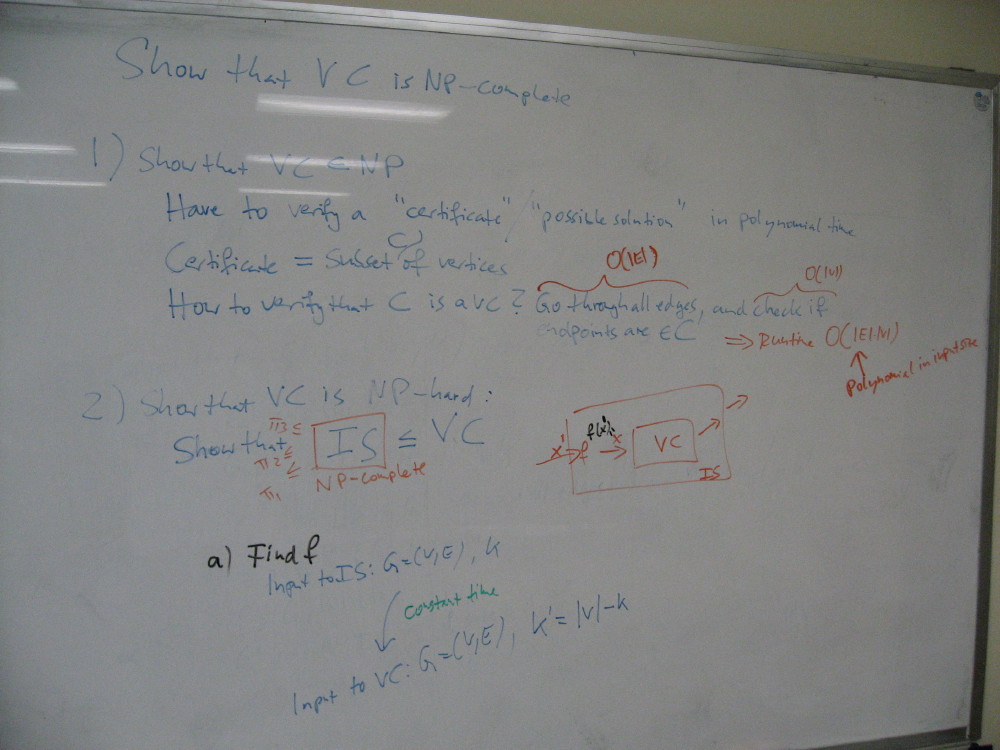 Show that VC is NP-complete
1) Show that VC ∈ NP
Have to verify a "certificate" / "possible solution" in polynomial time
C
Certificate = Subset of vertices
O(|E|)
O(|V|)
How to verify that C is a VC? Go through all edges, and check if
endpoints are ∈ C
⇒ Runtime O(|E|·|V|)
↑
Polynomial in input size
2) Show that VC is NP-hard:
Show that IS ≤ VC
π3 ≤
π2 ≤
π1 ≤
NP-complete
x' → f → VC
f(x')=x
IS
a) Find f
Input to IS: G=(V,E), K
constant time
Input to VC: G=(V,E), K'=|V|-K